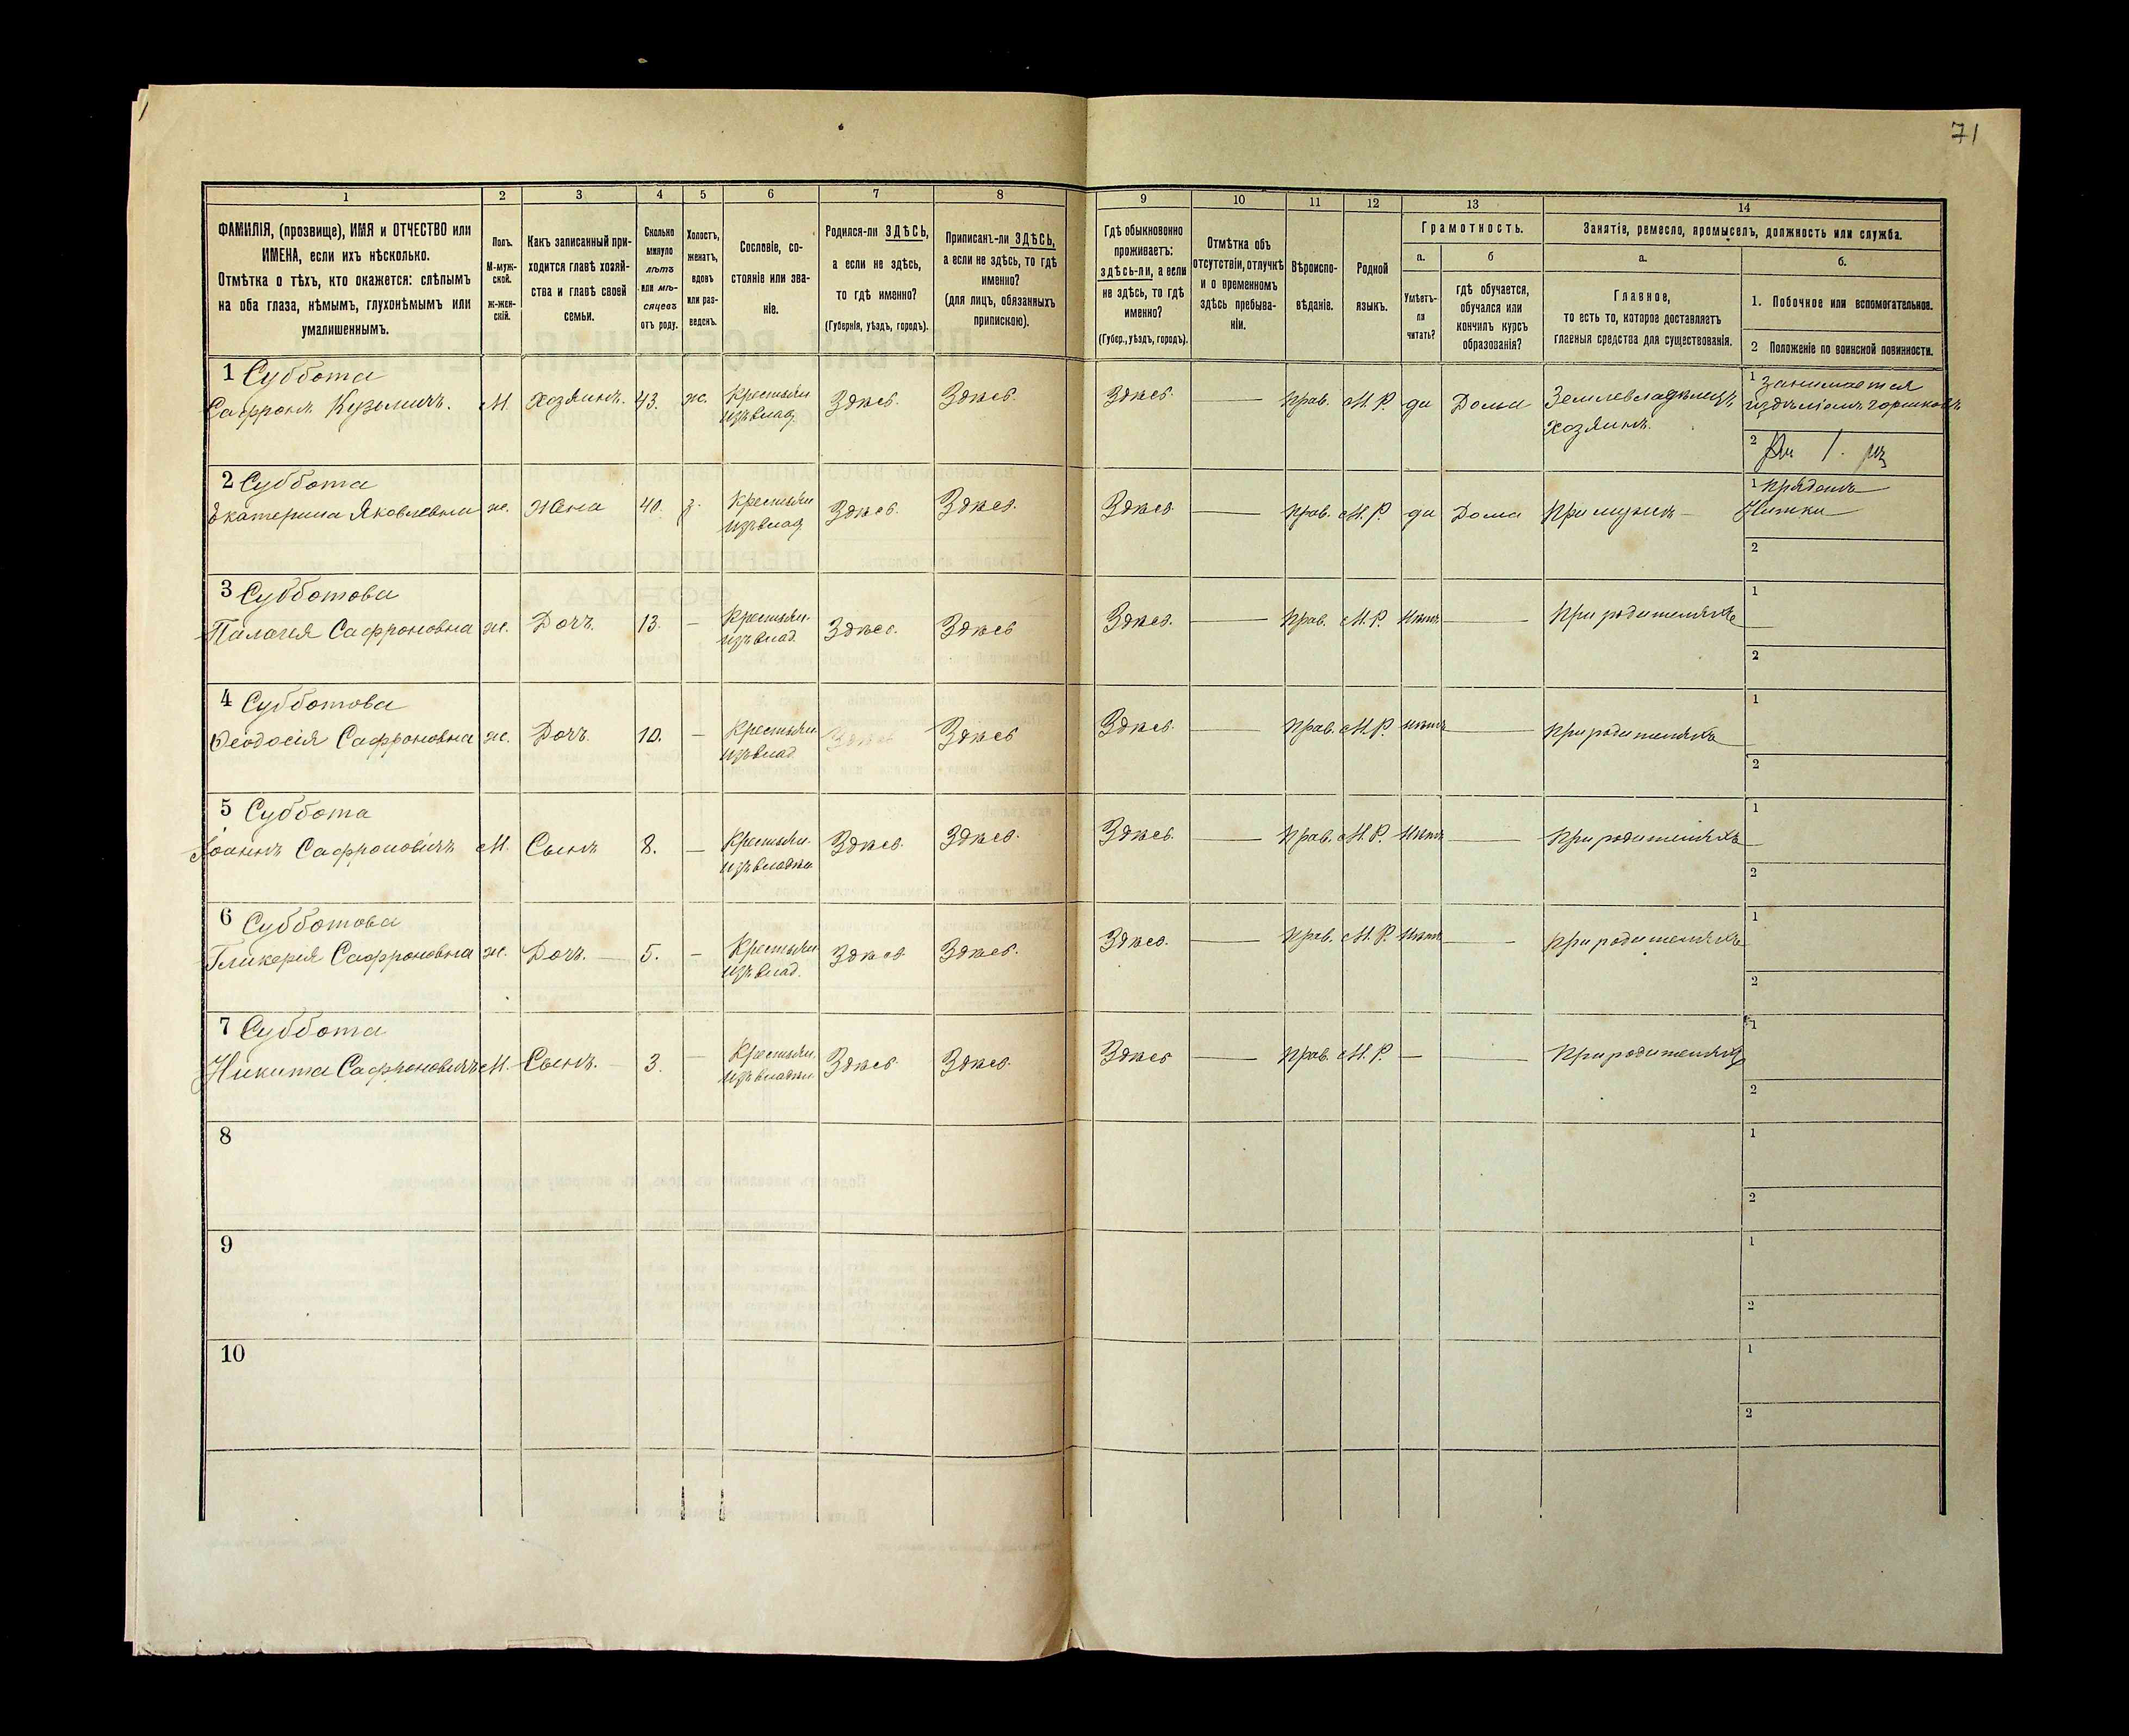 71
1 2 3 4 5 6 7 8 9 10 11 12 13 14
ФАМИЛІЯ, (прозвище), ИМЯ и ОТЧЕСТВО или
ИМЕНА, если ихъ нѣсколько.
Отмѣтка о тѣхъ, кто окажется: слѣпымъ
на оба глаза, нѣмымъ, глухонѣмымъ или
умалишеннымъ.
Полъ.
М-муж-
ской.
ж-жен-
скій.
Какъ записанный при-
ходится главѣ хозяй-
ства и главѣ своей
семьи.
Сколько
минуло
лѣтъ
или мѣ-
сяцевъ
отъ роду.
Холостъ,
женатъ,
вдовъ
или раз-
веденъ.
Сословіе, со-
стояніе или зва-
ніе.
Родился-ли ЗДѢСЬ,
а если не здѣсь,
то гдѣ именно?
(Губернія, уѣздъ, городъ).
Приписанъ-ли ЗДѢСЬ,
а если не здѣсь, то гдѣ
именно?
(для лицъ, обязанныхъ
припискою).
Гдѣ обыкновенно
проживаетъ:
здѣсь-ли, а если
не здѣсь, то гдѣ
именно?
(Губер., уѣздъ, городъ).
Отмѣтка объ
отсутствіи, отлучкѣ
и о временномъ
здѣсь пребыва-
ніи.
Вѣроиспо-
вѣданіе.
Родной
языкъ.
Грамотность.
а.
Умѣетъ-
ли
читать?
б
гдѣ обучается,
обучался или
кончилъ курсъ
образованія?
Занятіе, ремесло, промыселъ, должность или служба.
а.
Главное,
то есть то, которое доставляетъ
главныя средства для существованія.
б.
1. Побочное или вспомогательное.
2 Положеніе по воинской повинности.
1 Суббота
Сафронъ Кузьмичъ. М. Хозяинъ. 43. ж. Крестьян. Здѣсь. Здѣсь. Здѣсь. — прав. М.Р. да Дома Землевладѣлецъ
изъ влад.
Хозяинъ.
1 Занимается
издѣліемъ горшковъ
2
2 Суббота
Екатерина Яковлевна ж. Жена 40. з. Крестьян Здѣсь. Здѣсь. Здѣсь — прав. М.Р. да Дома При мужѣ —
изъ влад
1 Прядетъ
Нитки
2
3 Субботова
Палагея Сафроновна ж. Дочь. 13. — Крестьян. Здѣсь. Здѣсь Здѣсь. — прав. М.Р. Нѣтъ — При родителяхъ
изъ влад.
1
2
4 Субботова
Ѳеодосія Сафроновна ж. Дочь. 10. — Крестьян. Здѣсь Здѣсь Здѣсь. — прав. М.Р. Нѣтъ — При родителяхъ
изъ влад.
1
2
5 Суббота
Іоаннъ Сафроновичъ М. Сынъ 8. — Крестьян. Здѣсь. Здѣсь. Здѣсь. — прав. М.Р. Нѣтъ — При родителяхъ
1
2
6 Субботова
Гликерія Сафроновна ж. Дочь. — 5. — Крестьян. Здѣсь Здѣсь. Здѣсь. — прав. М.Р. Нѣтъ — При родителяхъ
изъ влад.
1
2
7 Суббота
Никита Сафроновичъ М. Сынъ. — 3. — Крестьян. Здѣсь Здѣсь. Здѣсь — прав. М.Р. — — При родителяхъ
1
2
8
1
2
9
1
2
10
1
2